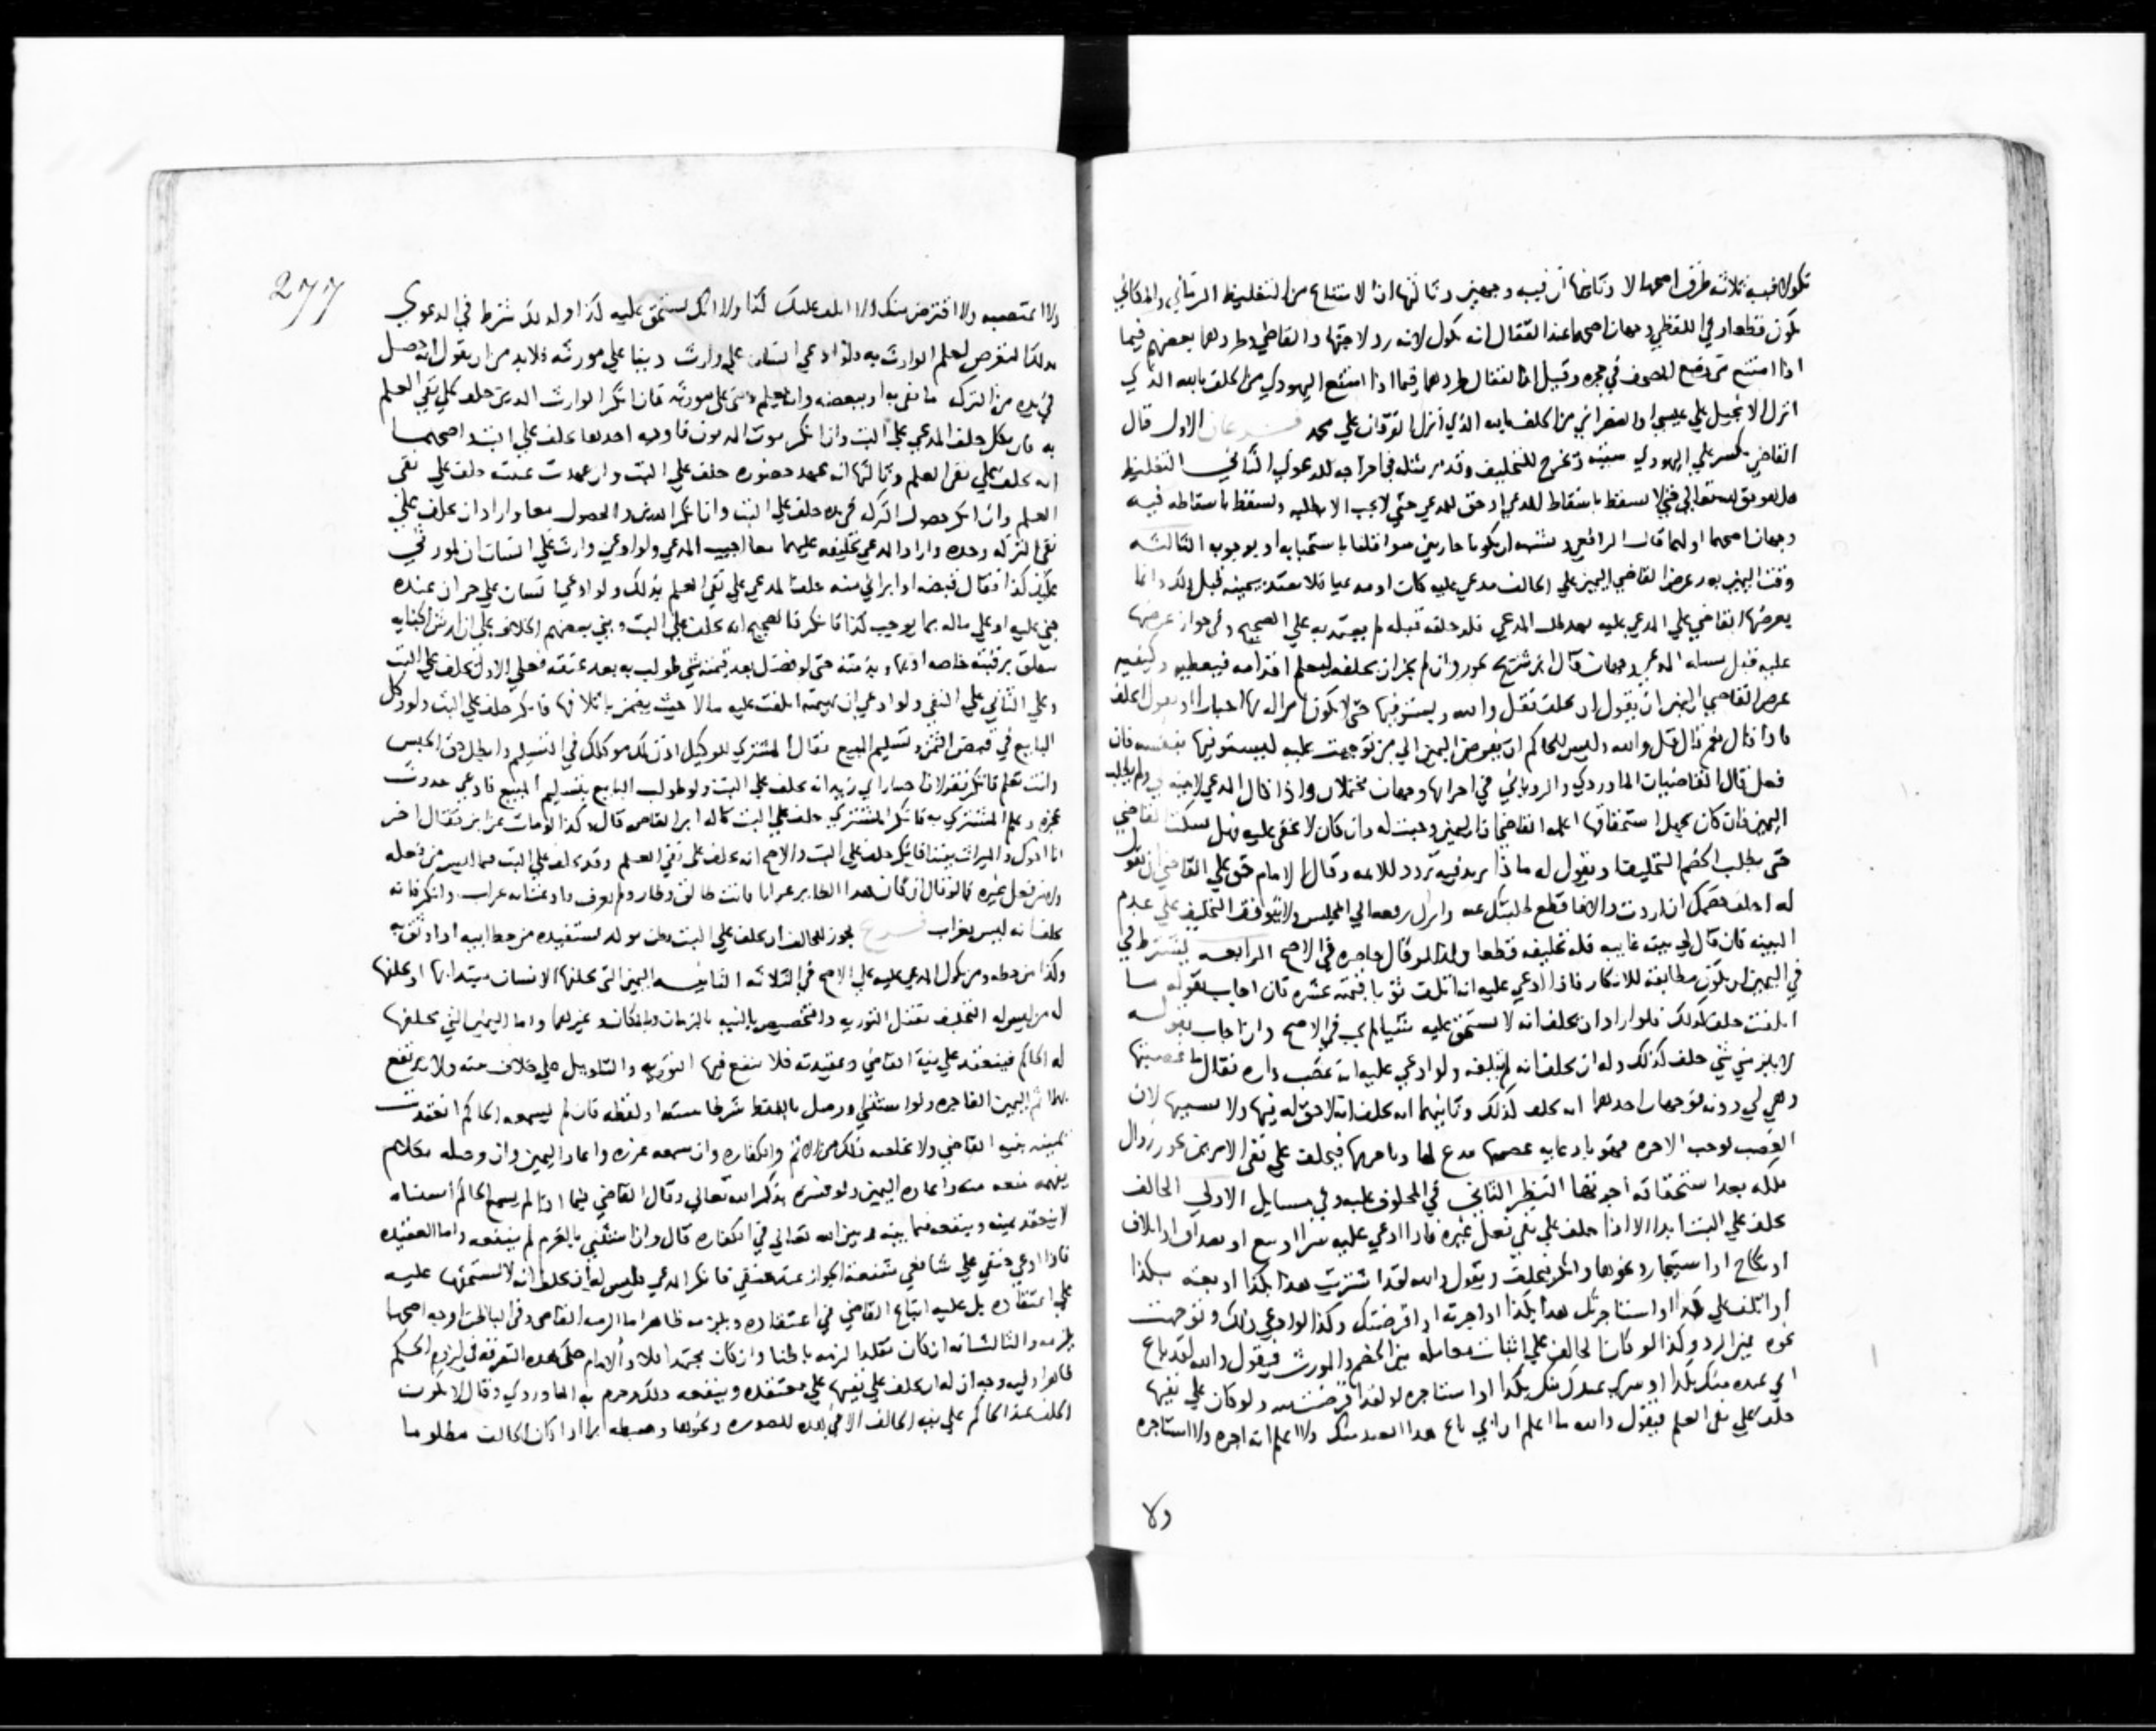 نكولا فيه ثلاثة طرق اصحها لا وثانيها ان فيه وجهين وثالثها ان الامتناع من التغليظ الزماني والمكاني
يكون قطعا وفي اللفظي وجهان اصحهما عند القفال انه نكول لانه رد لاجتهاد القاضي وطردهما بعضهم فيما
اذا امتنع من وضع المصحف في حجره وقيل ان القفال طردهما فيما اذا امتنع اليهودي من الحلف بالله الذي
انزل الانجيل علي عيسي والنصراني من الحلف بالله الذي أنزل الفرقان علي محمد فرعان الاول قال
القاضي يكسر علي اليهودي سبته ويخرج للتحليف وقد مر مثله في اخراجه للدعوي الثاني التغليظ
هل هو حق لله تعالي حتي لا يسقط باسقاط المدعي او حق للمدعي حتي لا يجب الا بطلبه ويسقط باسقاطه فيه
وجهان اصحهما اولهما قال الرافعي ويشبه ان يكونا جاريين سوا قلنا باستحبابه او بوجوبه الثالثه
وقت اليمين بعد عرض القاضي اليمين علي الحالف مدعي عليه كان او مدعيا فلا يعتد بيمينه قبل ذلك وانما
يعرضها القاضي علي المدعي عليه بعد طلب المدعي فلو حلفه قبله لم يعتد به علي الصحيح وفي جواز عرضها
عليه قبل مساله المدعي وجهان قال ابن شريح يجوز وان لم يجز ان يحلفه ليعلم اقدامه فيعظه وكيفيه
عرض القاضي اليمين ان يقول ان تحلف فقل والله ويستوفيها حتي لا يكون امراله بها اجبارا او يقول اتحلف
فاذا قال نعم قال قل والله وليس للحاكم ان يفوض اليمين الي من توجهت عليه ليستوفيها بنفسه فان
فعل قال القاضيان الماوردي والروياني في اجزائها وجهان محتملان واذا قال المدعي لا بينه لي ولم يطلب
اليمين فان كان يجهل استحقاقها اعلمه القاضي ان اليمين وجبت له وان كان لا يخفي عليه فهل يسكت القاضي
حتي يطلب الخصم التحليف او يقول له ماذا تريد فيه تردد للائمه وقال الامام حق علي القاضي ان يقول
له احلف خصمك ان اردت والا فاقطع
البينه فان قال لي بينه غايبه فله تحليفه قطعا وكذا لو قال حاضره في الاصح الرابعه يشترط في
في اليمين ان يكون مطابقه للانكار فاذا ادعي عليه انه اتلف ثوبا قيمته عشره فان اجاب بقوله ما
اتلفت حلف كذلك فلو اراد ان يحلف انه لا يستحق عليه شيا لم يجب في الاصح وان اجاب بقوله
لا يلزمني شي حلف كذلك وله ان يحلف انه لم يتلفه ولو ادعي عليه انه غصب داره فقال ما غصبتها
وهي لي دونه فوجهان احدهما انه يحلف كذلك وثانيهما انه يحلف انه لا حق له فيها ولا بسببها لان
الغصب يوجب الاجره فهو بادعايه غصبها مدع لها وباجرتها فيحلف علي نفي الامرين يجوز زوال
ملكه بعد استحقاقه اجرتها النظر الثاني في المحلوف عليه وفي مسايل الاولي الحالف
يحلف علي البت ابدا الا اذا حلف علي نفي فعل غيره فاذا ادعي عليه شرا او بيع او صداق او اتلاف
او نكاح او استيجار ونحوها وانكر فيحلف ويقول والله لقد اشتريت هذا بكذا او بعته بكذا
او اتلفت علي كذا او استاجرتك هذا بكذا او اجرته او اقرضتك وكذا لو ادعي ذلك وتوجهت
نحوه يمين الرد وكذا لو كان الحالف علي اثبات معامله بين الخصم والمورث فيقول والله لقد باع
ابي عبده منك بكذا او عبدك منك بكذا او استاجره او لقد اقرضت منه ولو كان علي نفيها
حلف علي نفي العلم فيقول والله ما اعلم ان ابي باع هذا العبد منك ولا اعلم انه اجره ولا استاجره
ولا
277
ولا اغتصبه ولا اقترض منك ولا اتلف عليك كذا ولا انك تستحق عليه كذا وله ذلك شرط في الدعوي
بذلك التعرض لعلم الوارث به فلو ادعي انسان علي وارث دينا علي مورثه فلابد من ان يقول انه حصل
في يده من التركه ما يفي به او ببعضه وانه يعلم ديني علي مورثه فان انكر الوارث الدين حلف علي نفي العلم
به فان نكل حلف المدعي علي البت وان انكر موت المديون فاوجه احدها يحلف علي البت واصحها
انه يحلف علي نفي العلم وثالثها انه عهد حضوره حلف علي البت وان عهدت غيبته حلف علي نفي
العلم وان انكر حصول التركه في يده حلف علي البت وان انكر الدين والحصول معا واراد ان يحلف علي
نفي التركه وحده واراد المدعي تحليفه عليهما معا اجيب المدعي ولو ادعي وارث علي انسان ان لمورثي
عليك كذا فقال قبضه او ابراني منه حلف المدعي علي نفي العلم بذلك ولو ادعي انسان علي حر ان عبده
جني عليه او علي ماله بما يوجب كذا فانكر فالصحيح انه يحلف علي البت وبني بعضهم الخلاف علي ان ارش الجنايه
يتعلق برقبته خاصه او بها وبذمته حتي لو فضل بعد قيمته شي طولب به بعد عتقه فعلي الاول يحلف علي البت
وعلي الثاني علي النفي ولو ادعي ان بهيمته اتلفت عليه مالا حيث يضمن باتلافها فانكر حلف علي البت ولو وكل
البايع في قبض الثمن وتسليم المبيع فقال المشتري للوكيل اذن لك موكلك في التسليم وابطل حق الحبس
وانت تعلم فانكر فقولان اختيار ابي زيد انه يحلف علي البت ولو طولب البايع بتسليم المبيع فادعي حدوث
عجزه وعلم المشتري به فانكر المشتري حلف علي البت قاله ابن القاص قال وكذا لو مات عن ابن فقال اخر
انا اخوك والميراث بيننا فانكر حلف علي البت والاصح انه يحلف علي نفي العلم وقد يحلف علي البت فيما ليس من فعله
ولا من فعل غيره كما لو قال ان كان هذا الطاير غرابا فانت طالق وطار ولم يعرف وادعت انه غراب وانكر فانه
يحلف انه ليس بغراب فرع يجوز للحالف ان يحلف علي البت بظن موكد يستفيده من خط ابيه اذا وثق به
وكذا من خطه ومن نكول المدعي عليه علي الاصح في الثلاثه الثانيه اليمين التي يحلفها الانسان مبتديا بها او يحلفها
له من ليس له التحليف تقبل التوريه والتخصيص بالنيه بالزمان والمكان وغيرهما واما اليمين التي يحلفها
له الحاكم فينعقد علي نية القاضي وعقيدته فلا ينفع فيها التوريه والتاويل علي خلاف منه ولا يرتفع
بهما اثم اليمين الفاجره ولو استثني او وصل باللفظ شرطا بنيته او لفظه فان لم يسمعه الحاكم انعقدت
يمينه بنيه القاضي ولا يخلصه ذلك من الاثم والكفاره وان سمعه عزره واعاد اليمين وان وصله بكلام
لا ينعقد يمينه وينفعه فيما بينه وبين الله تعالي في الكفاره قال وان استثني بالعزم لم ينفعه واما العقيده
فاذا ادعي حنفي علي شافعي شفعة الجوار عند حنفي فانكر المدعي فليس له ان يحلف انه لا يستحقها عليه
علي اعتقاده بل عليه اتباع القاضي في اعتقاده ويلزمه ظاهرا ما الزمه القاضي وفي الباطن اوجه اصحها
يلزمه والثالث انه ان كان مقلدا لزمه باطنا وان كان مجتهدا فلا والامام حكي هذه التفرقه في لزوم الحكم
ظاهرا وليه وجه ان له ان يحلف علي نفيها علي معتقده وينفعه ذلك وجزم به الماوردي وقال لا يكون
الحلف عند الحاكم علي نيه الحالف الا في هذه الصوره ونحوها وضبطه بما اذا كان الحالف مظلوما